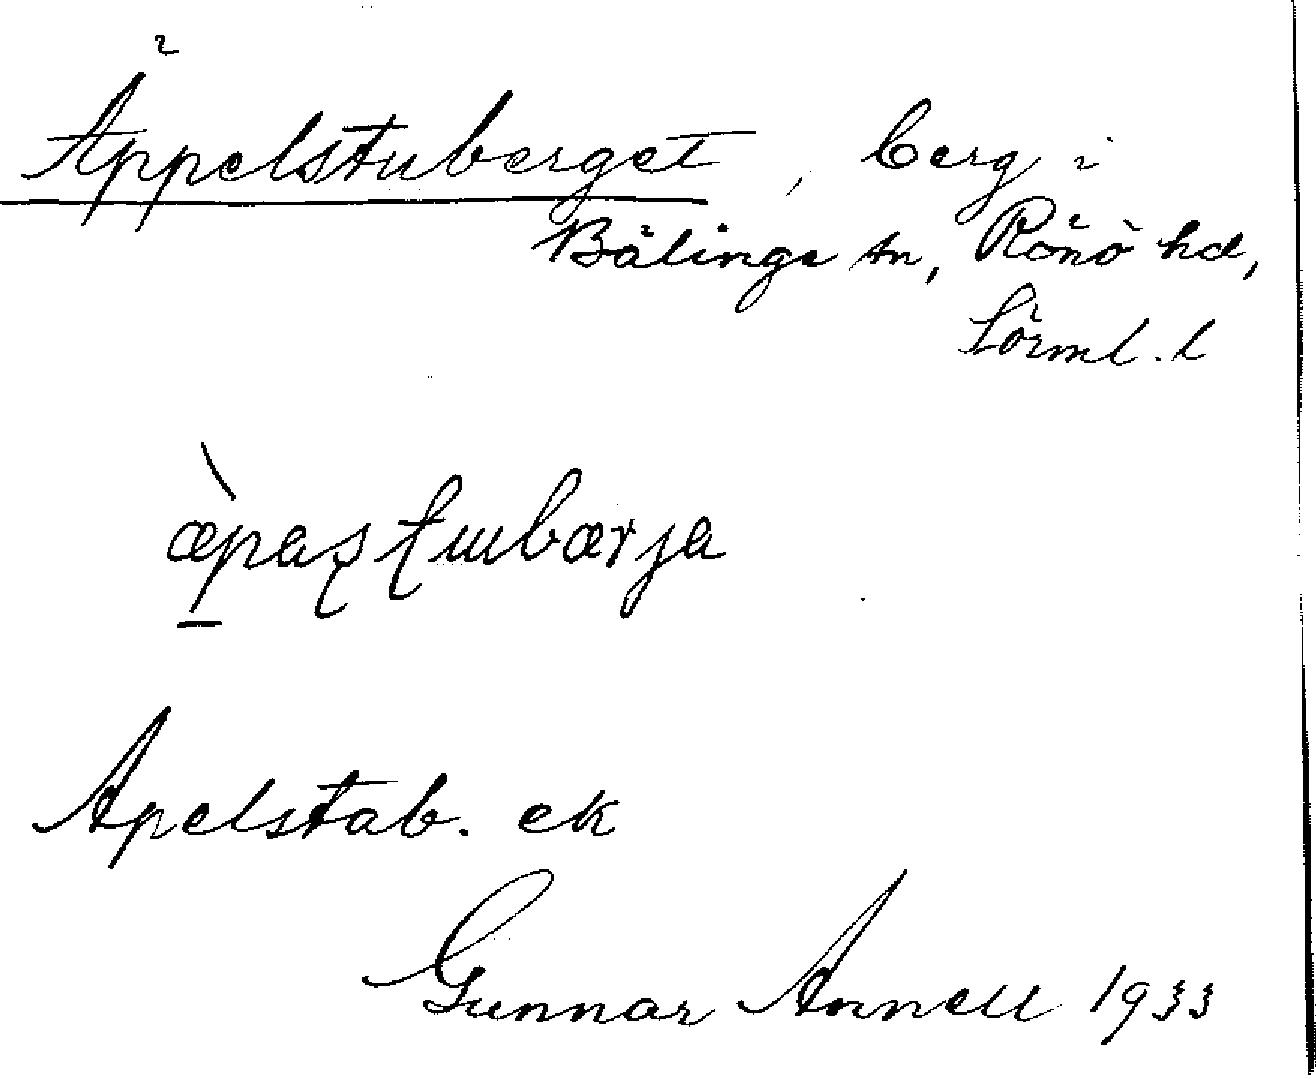 Äppelstuberget, berg i
Bälinge sn, Rönö hd,
Sörml. l
æpaʂʈɯbærja
Apelstab. ek
Gunnar Annell 1933